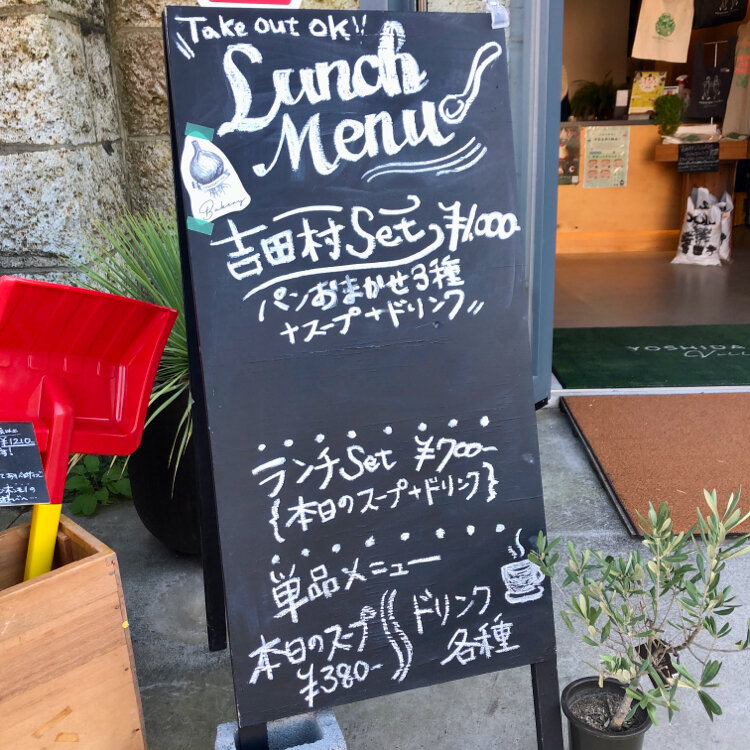 Take out OK!!
Lunch
Menu
Bakery
吉田村Set ¥1,000
パンおまかせ3種
+スープ+ドリンク
ランチSet ¥700-
{本日のスープ+ドリンク}
単品メニュー
本日のスープ
¥380-
ドリンク
各種
¥1210
YOSHIDA